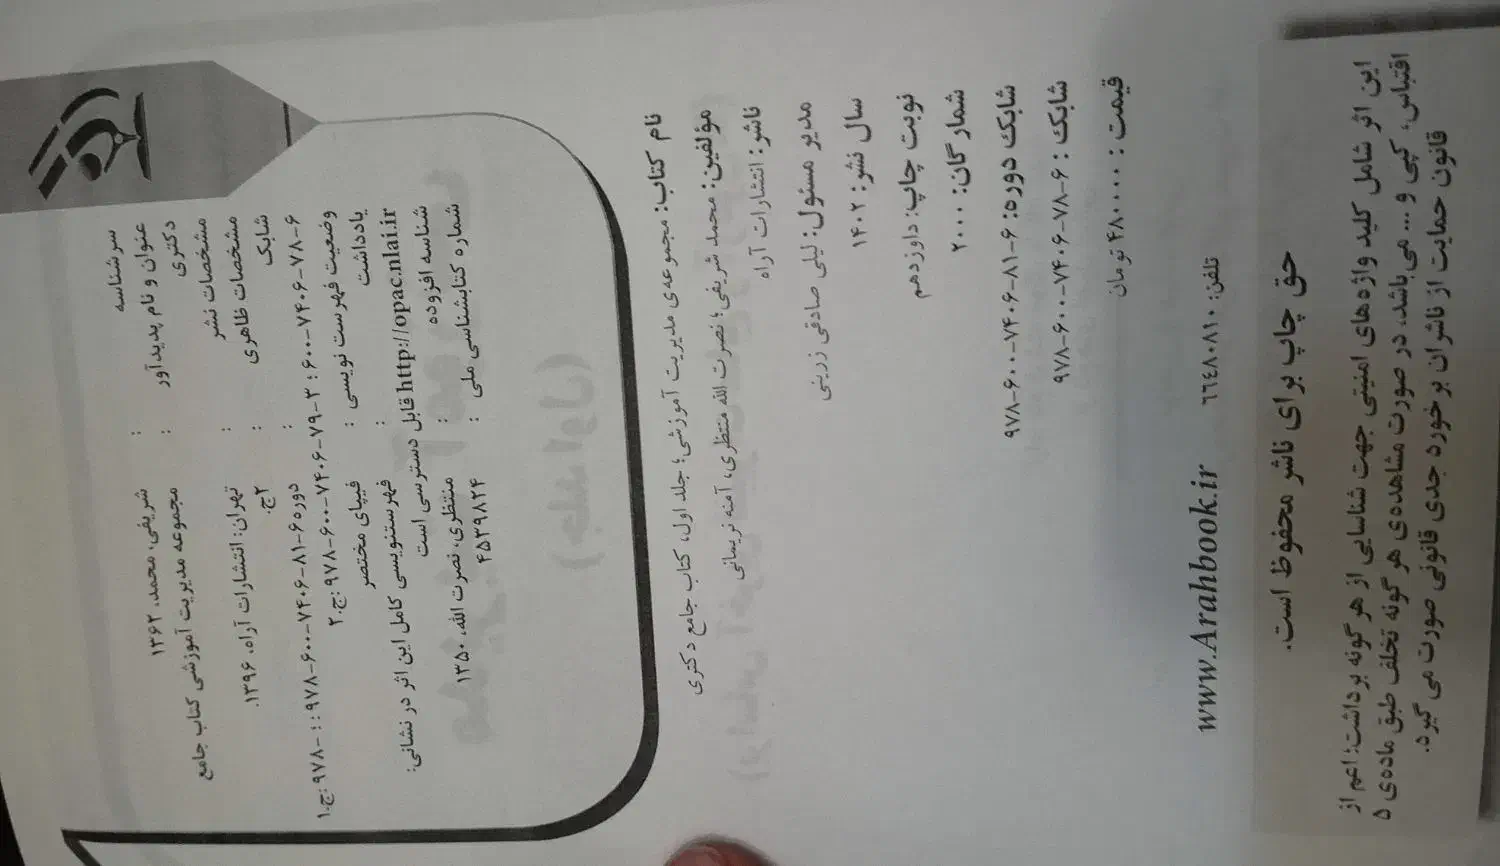 سرشناسه : شریفی، محمد، ۱۳۶۲
عنوان و نام پدیدآور : مجموعه مدیریت آموزشی کتاب جامع
دکتری
مشخصات نشر : تهران: انتشارات آراه، ۱۳۹۶.
مشخصات ظاهری : ۲ج.
شابک : دوره۶-۸۱-۷۴۰۶-۶۰۰-۹۷۸ : :
۹۷۸-۶۰۰-۷۴۰۶-۷۸-۶ :ج.۱
۹۷۸-۶۰۰-۷۴۰۶-۷۹-۳ :ج.۲
وضعیت فهرست نویسی : فیپای مختصر
یادداشت : فهرستنویسی کامل این اثر در نشانی:
http://opac.nlai.ir قابل دسترسی است
شناسه افزوده : منتظری، نصرت الله، ۱۳۵۰
شماره کتابشناسی ملی : ۴۵۳۹۸۲۴
نام کتاب: مجموعه‌ی مدیریت آموزشی؛ جلد اول، کتاب جامع دکتری
مؤلفین: محمد شریفی؛ نصرت الله منتظری، آمنه نریمانی
ناشر: انتشارات آراه
مدیر مسئول: لیلی صادقی زرینی
سال نشر: ۱۴۰۲
نوبت چاپ: داوزدهم
شمارگان: ۲۰۰۰
شابک دوره: ۶-۸۱-۷۴۰۶-۶۰۰-۹۷۸
شابک : ۶-۷۸-۷۴۰۶-۶۰۰-۹۷۸
قیمت : ۴۸۰۰۰۰ تومان
تلفن: ٦٦٤٨٠٨١٠ www.Arahbook.ir
حق چاپ برای ناشر محفوظ است.
این اثر شامل کلید واژه‌های امنیتی جهت شناسایی از هر گونه برداشت؛ اعم از
اقتباس، کپی و ... می‌باشد، در صورت مشاهده‌ی هر گونه تخلف طبق ماده‌ی ۵
قانون حمایت از ناشران برخورد جدی قانونی صورت می گیرد.